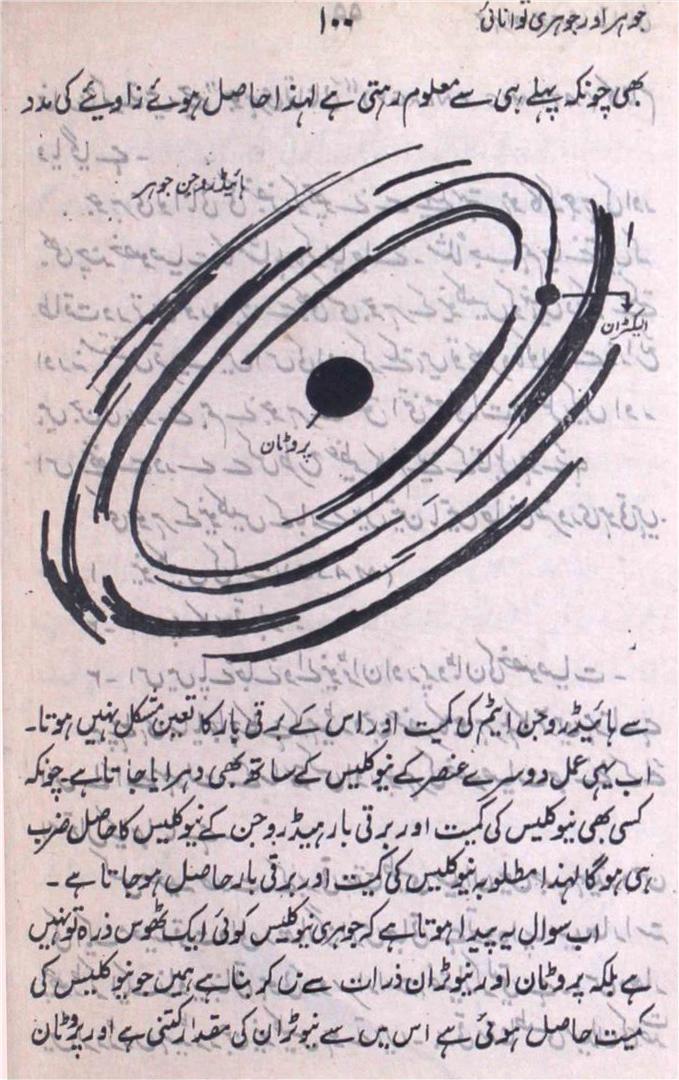 جوہر اور جوہری توانائی
۱۰۰
بھی چونکہ پہلے ہی سے معلوم رہتی ہے لہذا حاصل ہوئے زاویئے کی مدد
ہائیڈروجن جوہر
الیکٹران
پروٹان
سے ہائیڈروجن ایٹم کی کمیت اور اس کے برقی بار کا تعین مشکل نہیں ہوتا۔
اب یہی عمل دوسرے عنصر کے نیوکلیس کے ساتھ بھی دہرایا جاتا ہے۔ چونکہ
کسی بھی نیوکلیس کی کمیت اور برقی بار ہیڈروجن کے نیوکلیس کا حاصل ضرب
ہی ہوگا لہذا مطلوبہ نیوکلیس کی کمیت اور برقی بار حاصل ہوجاتا ہے۔
اب سوال یہ پیدا ہوتا ہے کہ جوہری نیوکلیس کوئی ایک ٹھوس ذرہ تو نہیں
ہے بلکہ پروٹان اور نیوٹران ذرات سے مل کر بنا ہے ہمیں جو نیوکلیس کی
کمیت حاصل ہوئی ہے اس میں سے نیوٹران کی مقدار کتنی ہے اور پروٹان